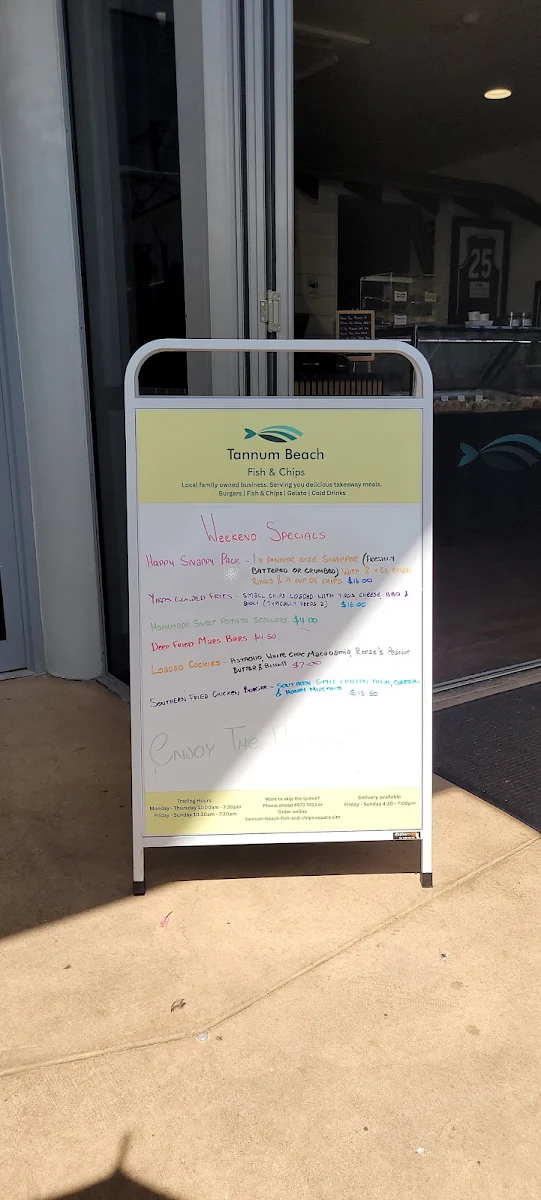 25
Tannum Beach
Fish & Chips
Local family owned business. Serving you delicious takeaway meals.
Burgers | Fish & Chips | Gelato | Cold Drinks
WEEKEND SPECIALS
HAPPY SNAPPY PACK - 1 X DINNER SIZE SNAPPER (FRESHLY
BATTERED OR CRUMBED) WITH 2 X
RINGS & A CUP OF CHIPS $16.00
FRIES - SMALL CHIPS LOADED WITH CHEESE BBQ &
(TYPICALLY FEEDS 2) $16.00
HOMEMADE SWEET POTATO SCALLOPS $4.00
DEEP FRIED MARS BARS $4.50
LOADED COOKIES - WHITE CHOC MACADAMIA, REESE'S PEANUT
BUTTER & $7.00
SOUTHERN FRIED CHICKEN BURGER - SOUTHERN STYLE CHICKEN
& HONEY MUSTARD $15.50
ENJOY THE
Trading Hours:
Monday - Thursday 11:00am - 7:30pm
Friday - Sunday 10:30am - 7:30pm
Want to skip the queue?
Phone ahead 4973 7013 or
Order online
tannum-beach-fish-and-chips.square.site
Delivery available
Friday - Sunday 4:30 - 7:00pm